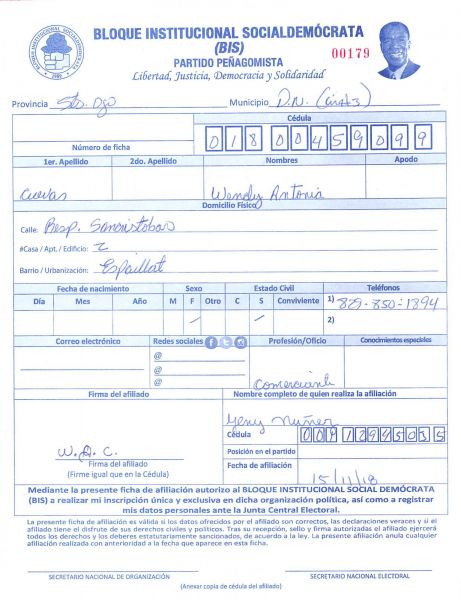 BLOQUE INSTITUCIONAL SOCIALDEMÓCRATA
(BIS)
PARTIDO PEÑAGOMISTA
00179
Libertad, Justicia, Democracia y Solidaridad
Provincia Sto. Dgo Municipio D.N.
Cédula
Número de ficha 018 0045909 9
1er. Apellido 2do. Apellido Nombres Apodo
Cuevas Wendy Antonia
Domicilio Físico
Calle: Resp. Sancristobar
#Casa / Apt. / Edificio: 2
Barrio / Urbanización: Espaillat
Fecha de nacimiento Sexo Estado Civil Teléfonos
Día Mes Año M F Otro C S Conviviente 1) 829-850-1894
2)
Correo electrónico Redes sociales Profesión/Oficio Conocimientos especiales
@
@
@
Comerciante
Firma del afiliado Nombre completo de quien realiza la afiliación
Yeny Nuñez
Cédula
W.A.C. Posición en el partido
Firma del afiliado
(Firme igual que en la Cédula)
Fecha de afiliación
15/11/18
Mediante la presente ficha de afiliación autorizo al BLOQUE INSTITUCIONAL SOCIAL DEMÓCRATA
(BIS) a realizar mi inscripción única y exclusiva en dicha organización política, así como a registrar
mis datos personales ante la Junta Central Electoral.
La presente ficha de afiliación es válida si los datos ofrecidos por el afiliado son correctos, las declaraciones veraces y si el
afiliado tiene el disfrute de sus derechos civiles y políticos. Tras su recepción, sello y firma autorizadas el afiliado ejercerá
todos los derechos y los deberes estatutariamente sancionados, de acuerdo a la ley. La presente afiliación anula cualquier
afiliación realizada con anterioridad a la fecha que aparece en esta ficha.
SECRETARIO NACIONAL DE ORGANIZACIÓN SECRETARIO NACIONAL ELECTORAL
(Anexar copia de cédula del afiliado)